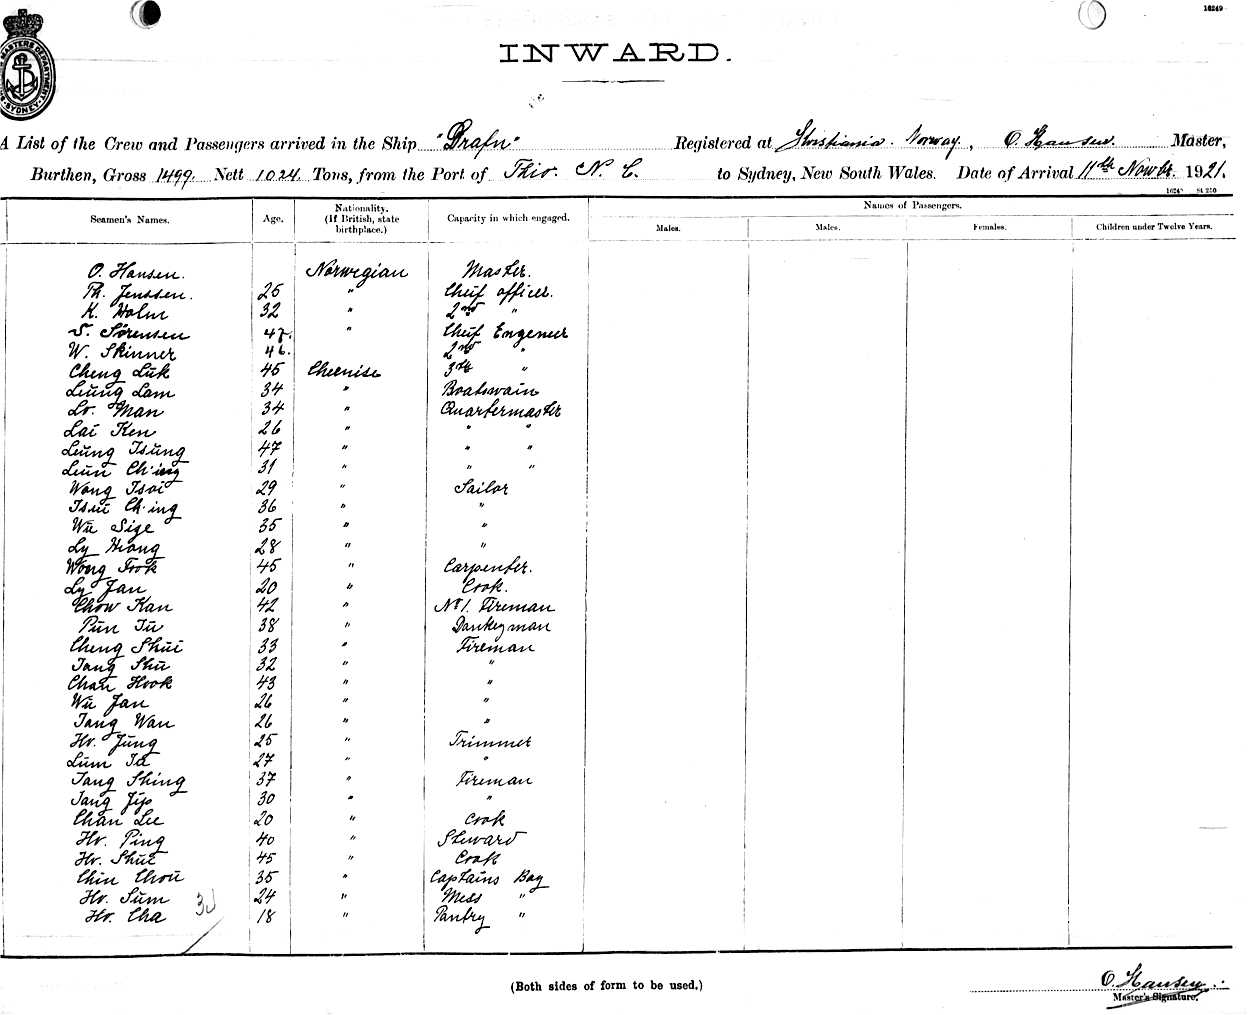 16249
MASTERS DEPARTMENT
SYDNEY
INWARD.
A List of the Crew and Passengers arrived in the Ship "Drafn" Registered at Kristiania. Norway, O. Hansen. Master,
Burthen, Gross 1499. Nett 1024. Tons, from the Port of Thio. N. C. to Sydney, New South Wales. Date of Arrival 11th Novbr. 1921.
St 250
Names of Passengers.
Seamen's Names. Age. Nationality. (If British, state birthplace.) Capacity in which engaged. Males. Males. Females. Children under Twelve Years.
O. Hansen. Norwegian Master.
Th. Jenssen. 25 " Cheif officer.
K. Holm 32 " 2nd "
S. Sørensen 47. " Cheif Engeneer
W. Skinner 46. 2nd "
Cheng Luk 45 Cheenise 3th "
Leung Lam 34 " Boatswain
Lo. Man 34 " Quartermaster
Lai Ken 26 " " "
Leung Tsung 47 " " "
Leun Ch'ing 31 " " "
Wong Tsoi 29 " Sailor
Tsui Ch'ing 36 " "
Wu Sige 35 " "
Ly Hong 28 " "
Wong Fook 45 " Carpenter.
Ly Jan 20 " Cook.
Chow Kan 42 " No 1. Fireman
Pun Tu 38 " Dankeyman
Cheng Shui 33 " Fireman
Tang Shu 32 " "
Chan Hook 43 " "
Wu Jan 26 " "
Tang Wan 26 " "
Ho. Jung 25 " Trimmer
Lum Ta 27 " "
Tang Shing 37 " Fireman
Tang Jip 30 " "
Chan Lee 20 " Cook
Ho. Ping 40 " Steward
Ho. Shui 45 " Cook
Chin Chou 35 " Captains Boy
Ho. Sum 24 " Mess "
Ho. Cha 18 " Pantry "
(Both sides of form to be used.)
O Hansen
Master's Signature.